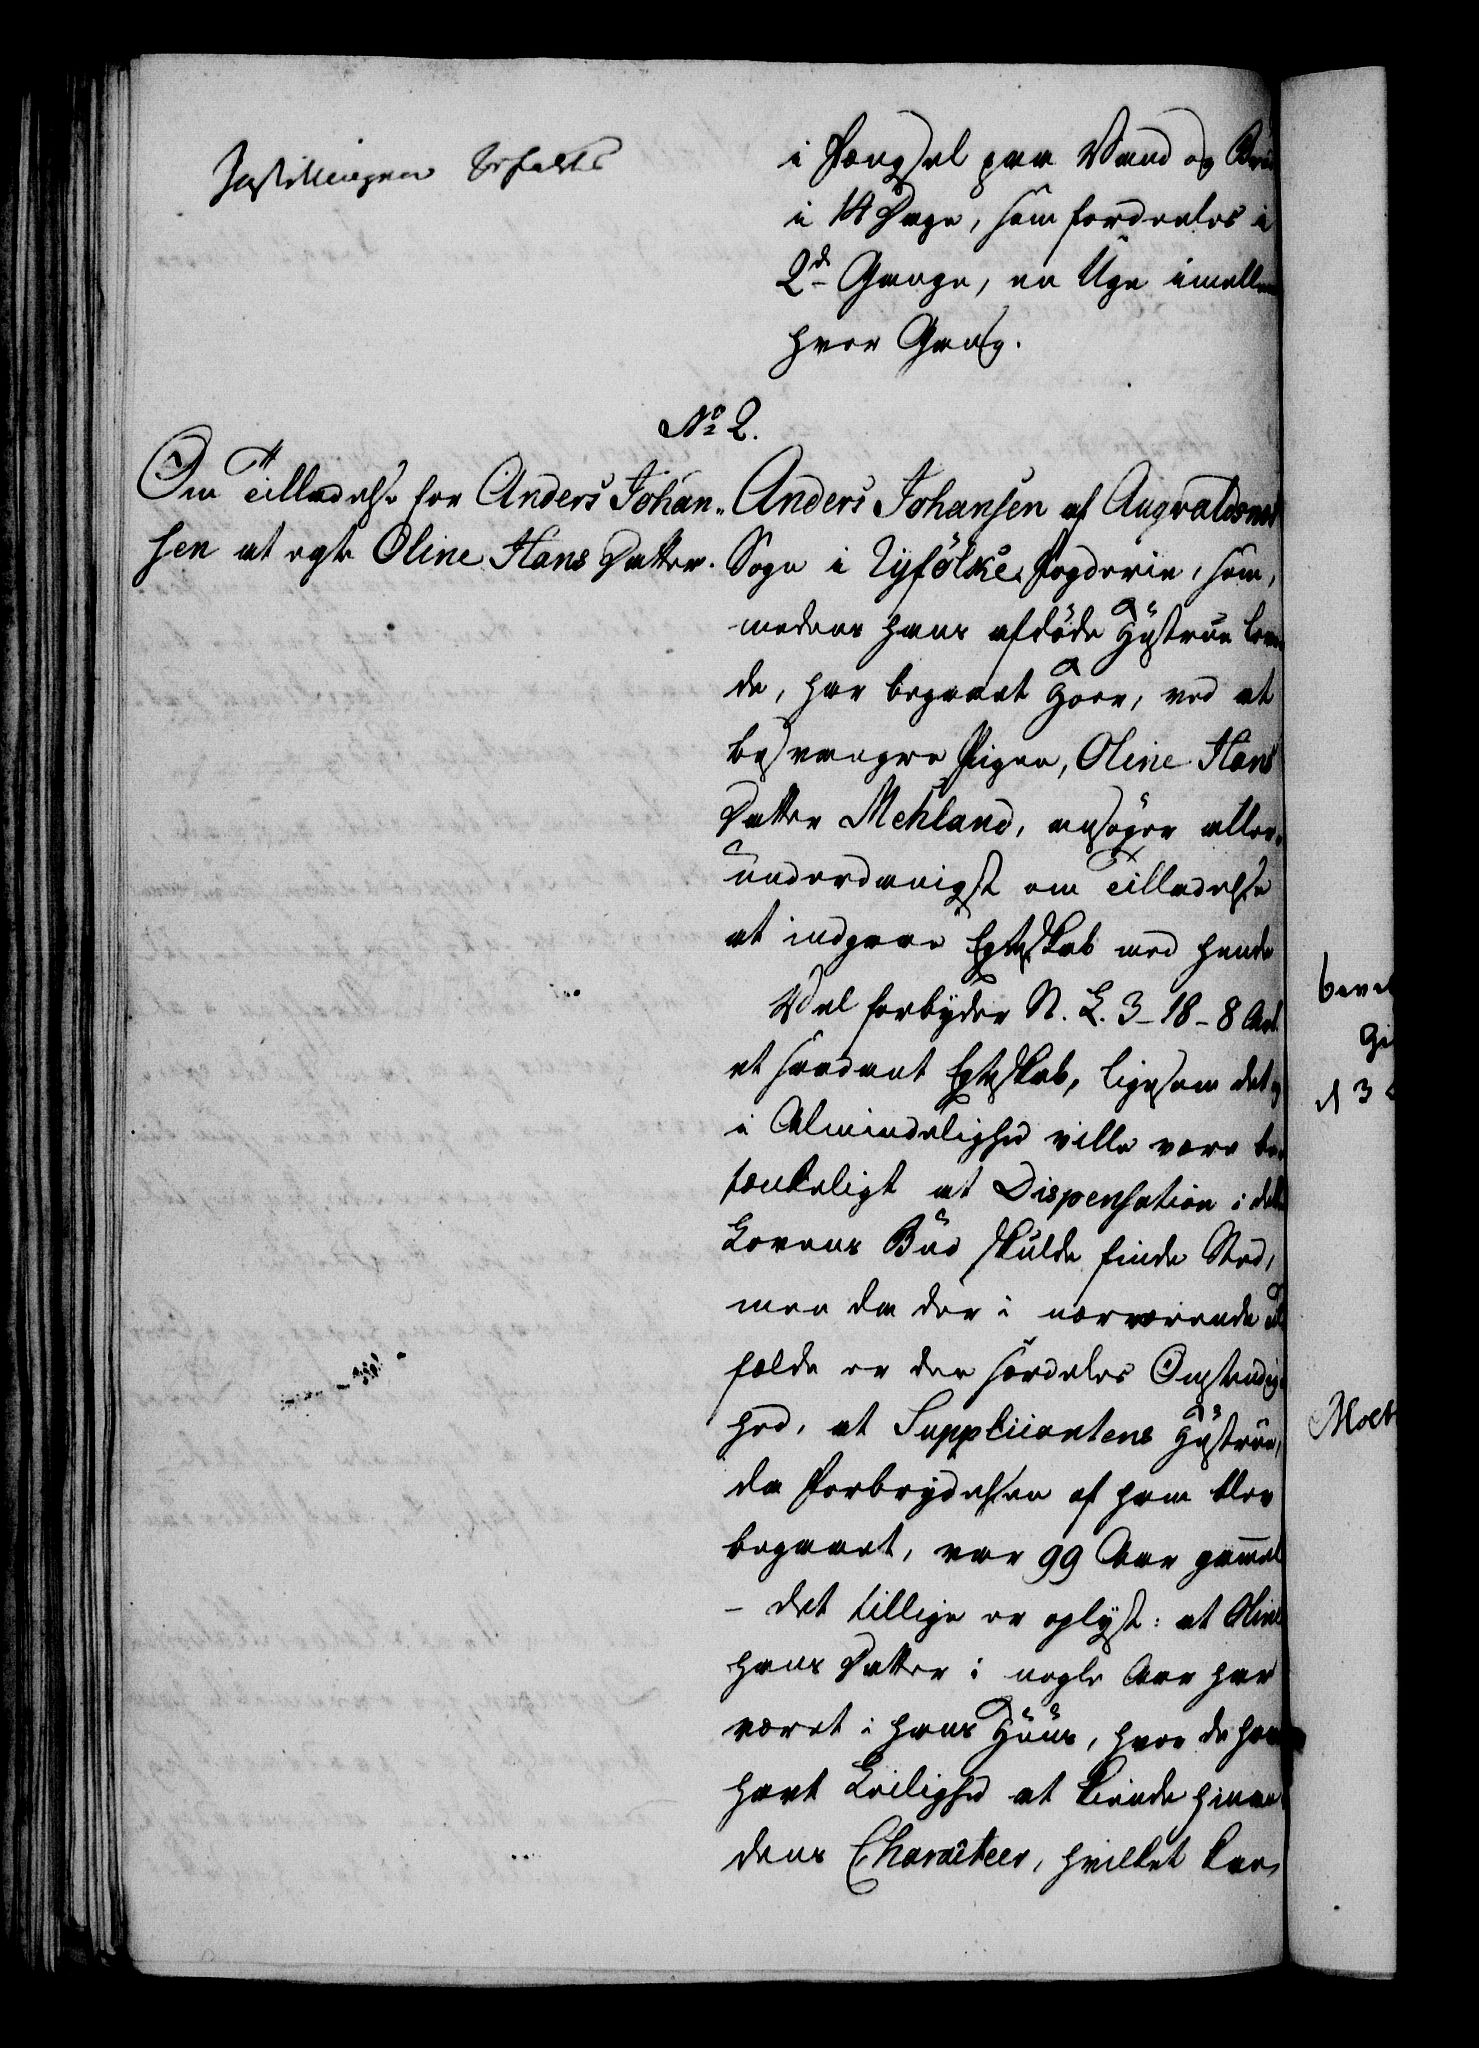 Indstillingen bifaldes
i Fængsel paa Vand og Brød
i 14 Dage, som fordeeles i
2de Gange, en Uge imellem
hver Gang.
No 2.
Om Tilladelse for Anders Johan-
sen at egte Oline Hans Datter.
Anders Johansen af Augvaldsnes
Sogn i Ryfølke Fogderie, som,
medens hans afdøde Hustrue leve-
de, har begaaet Hoer, ved at
besvangre Pigen, Oline Hans
Datter Mehland, ansøger aller-
underdanigst om Tilladelse
at indgaae Egteskab med hende
Vel forbyder N. L. 3-18-8 Art.
et saadant Egteskab, ligesom det og
i Almindelighed ville være be-
tænkeligt at Dispensation i dette
Lovens Bud skulde finde Sted,
men da der i nærværende Til-
fælde er den særdeles Omstendig-
hed, at Supplicantens Hustrue,
da Forbrydelsen af ham blev
begaaet, var 99 Aar gammel
- det tillige er oplyst: at Oline
Hans Datter i nogle Aar har
været i hans Huus, hvor de have
havt Leilighed at kiende hinan-
dens Characteer, hvilket kan,